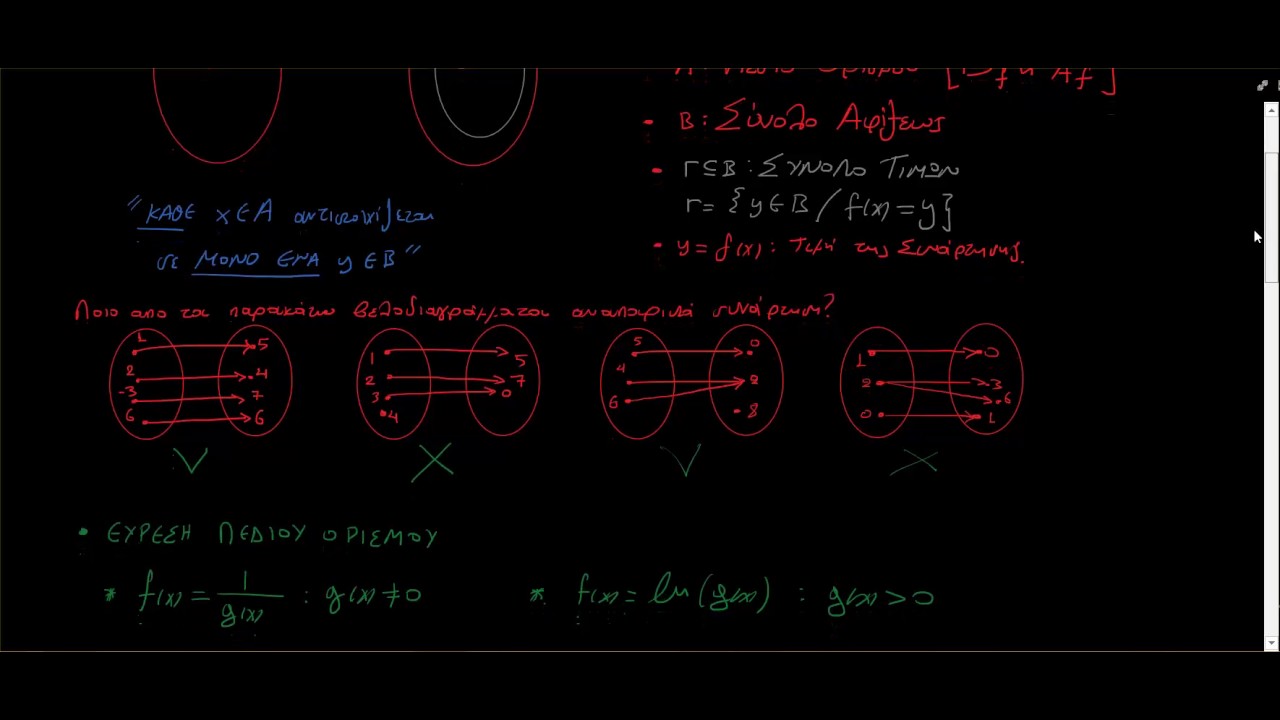 B: Σύνολο Αφίξεως
Γ⊆B: ΣΥΝΟΛΟ ΤΙΜΩΝ
Γ= {y∈B / f(x)=y}
y = f(x): Τιμή της Συνάρτησης.
"ΚΑΘΕ x∈A αντιστοιχίζεται
σε ΜΟΝΟ ΕΝΑ y∈B"
Ποιο απο τα παρακάτω βελοδιαγράμματα αναπαριστά συνάρτηση?
1 2 -3 6 5 4 7 6
1 2 3 4 5 7 0
5 4 6 0 2 8
1 2 0 0 3 6 1
V X V X
• ΕΥΡΕΣΗ ΠΕΔΙΟΥ ΟΡΙΣΜΟΥ
* f(x) = 1/g(x) : g(x) ≠ 0
* f(x) = ln(g(x)) : g(x) > 0